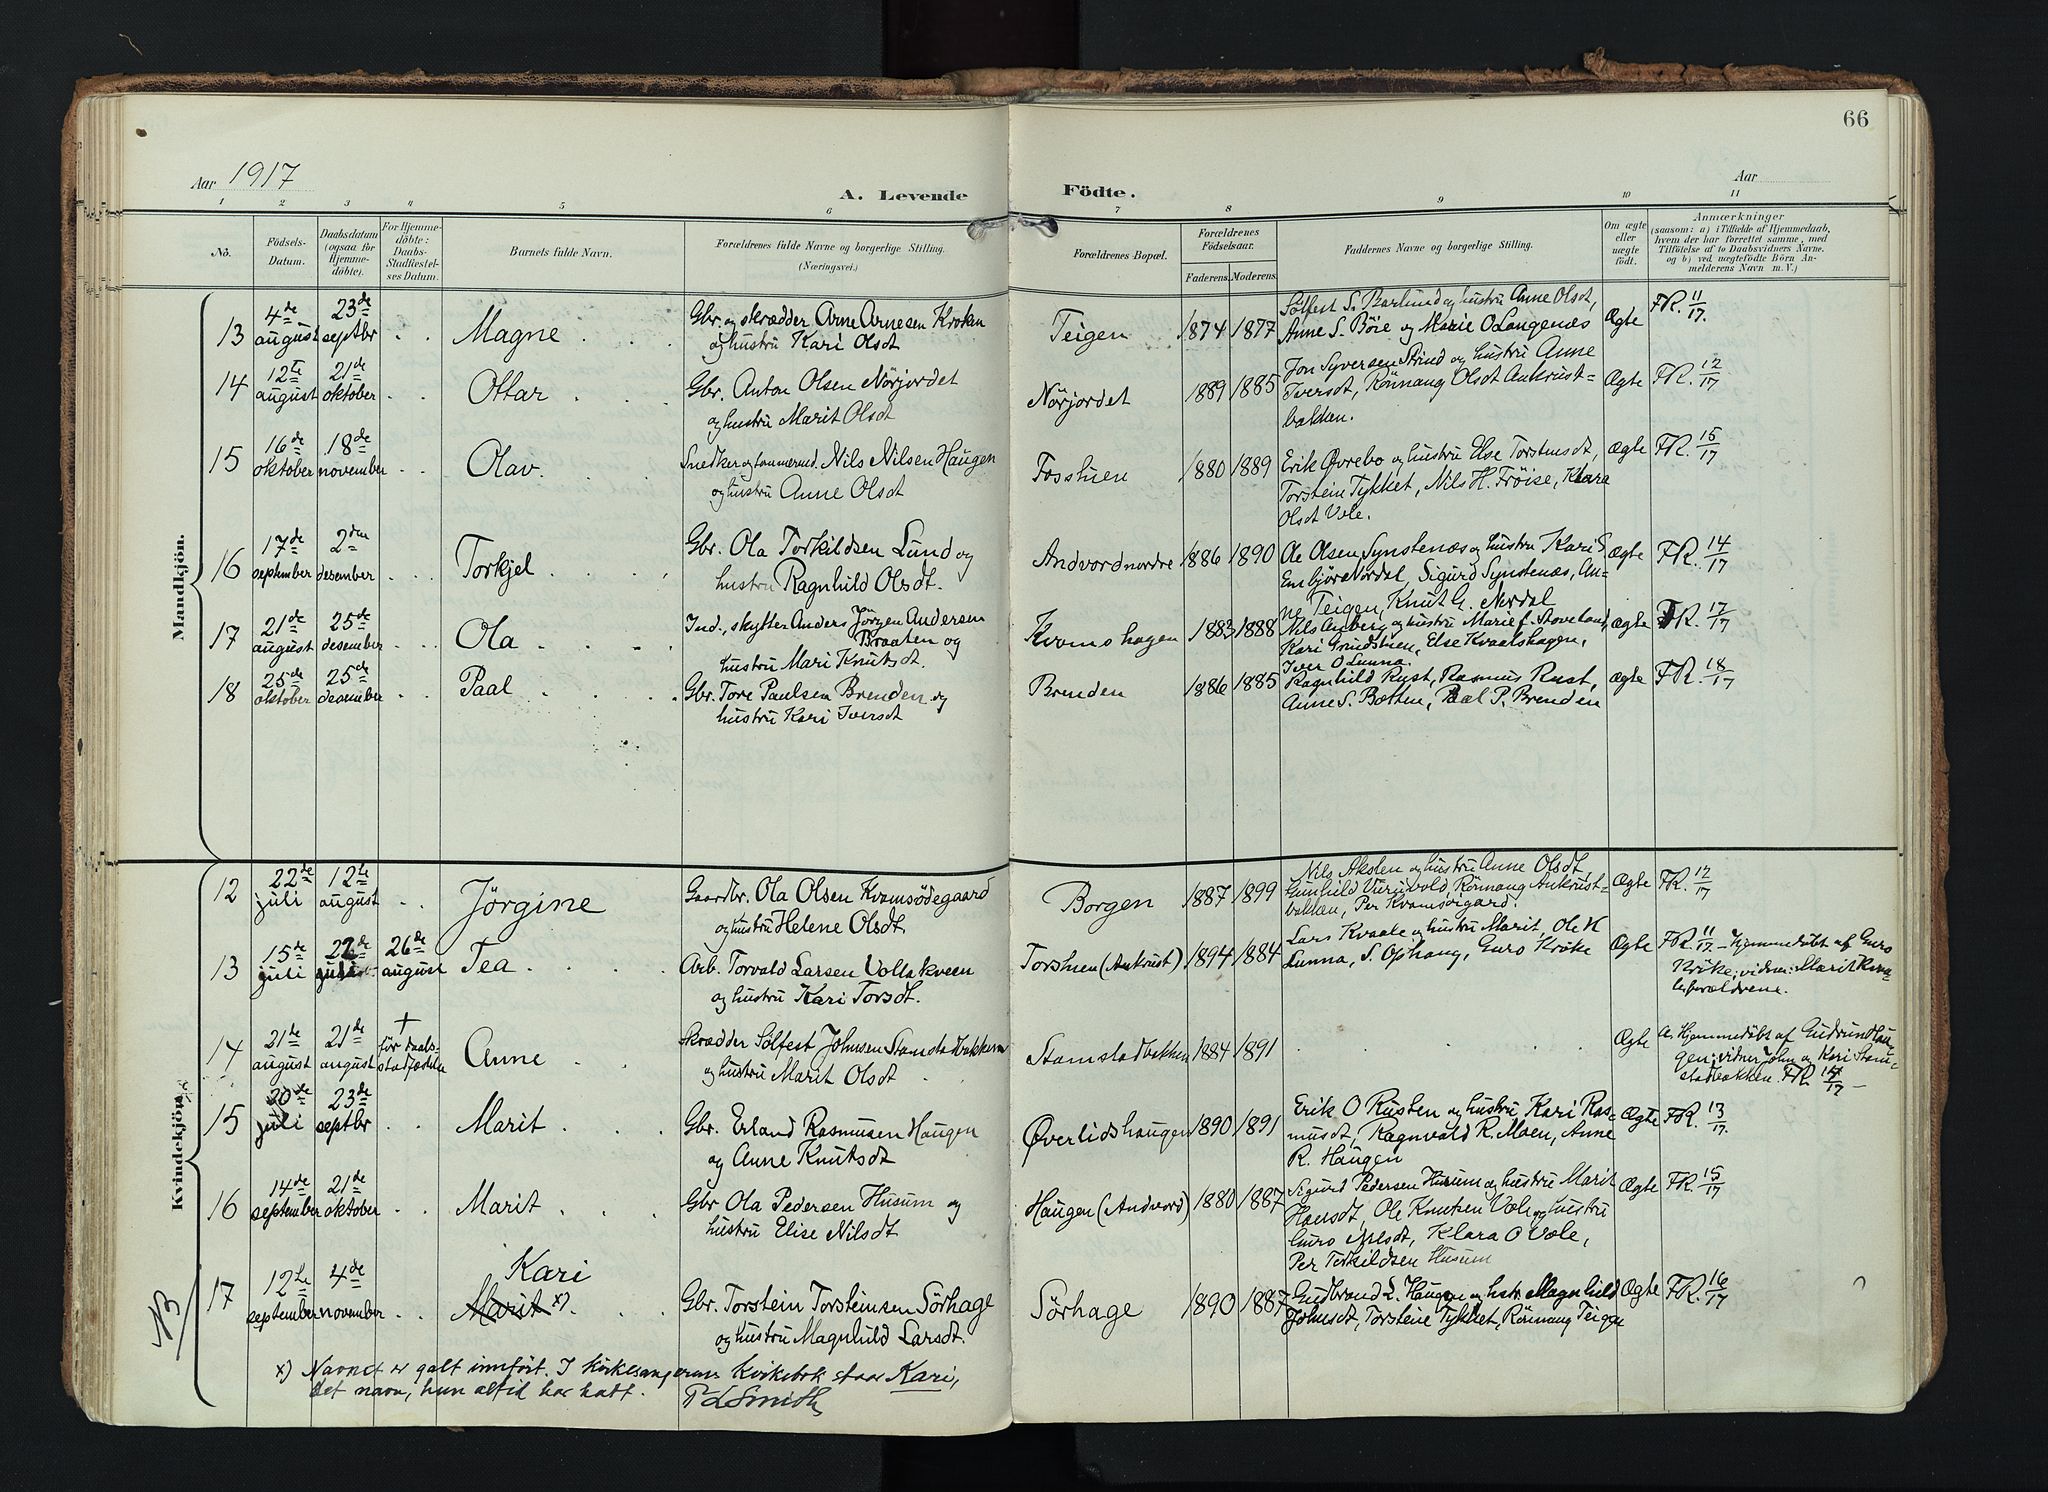 66
Aar 1917
A. Levende Födte.
Aar
1 2 3 4 5 6 7 8 9 10 11
No.
Födsels-Datum.
Daabsdatum (ogsaa for Hjemmedöbte).
For Hjemmedöbte: Daabs-Stadfæstelses Datum.
Barnets fulde Navn.
Forældrenes fulde Navne og borgerlige Stilling.
(Næringsvei.)
Forældrenes Bopæl.
Forældrenes Födselsaar.
Faderens. Moderens.
Faddernes Navne og borgerlige Stilling.
Om ægte eller uægte födt.
Anmærkninger
(saasom: a) i Tilfælde af Hjemmedaab, hvem der har forrettet samme, med Tilföielse af to Daabsvidners Navne. og b) ved uægtefödte Börn Anmelderens Navn m. V.)
Mandkjön.
13 4de august 23de septbr Magne Gbr. og skrædder Arne Arnesen Kroken og hustru Kari Olsdt Teigen 1874 1877 Sölfest S. Barlund og hustru Anne Olsdt, Anne S. Böie og Marie O Langenæs Ægte FR. 11/17.
14 12te august 21de oktober Ottar Gbr. Anton Olsen Nörjordet og hustru Marit Olsdt Nörjordet 1889 1885 Jon Syversen Strind og hustru Anne Iversdt, Rönnaug Olsdt Aukrust=bakken. Ægte FR. 12/17
15 16de oktober 18de november Olav. Snedker og tømmermd. Nils Nilsen Haugen og hustru Anne Olsdt Fosshien 1880 1889 Erik Øvrebo og hustru Else Torstensdt, Torstein Tykket, Nils H. Fröise, Klara Olsdt Vole. Ægte FR. 15/17
16 17de september 2den desember Torkjel Gbr. Ola Torkildsen Lund og hustru Ragnhild Olsdt. Andvordnordre 1886 1890 Ole Olsen Synstenæs og hustru Kari Nordal, Sigurd Synstenæs, Anne Teigen, Knut G. Nordal Ægte FR. 14/17
17 21de august 25de desember Ola Ind., skytter Anders Jörgen Andersen Braaten og hustru Mari Knutsdt. Kvomshagen 1883 1888 Nils og hustru Marie Kari Else Kvaalshagen, Iver O Lunna. Ægte FR. 17/17
18 25de oktober 25de desember Paal Gbr. Tore Paulsen Brenden og hustru Kari Iversdt Brenden 1886 1885 Ragnhild Rust, Rasmus Rust, Anne S. Botten, Paal P. Brenden Ægte FR. 18/17
Kvindekjön.
12 22de juli 12te august Jörgine Gaardbr. Ola Olsen Kvamsödegaard og hustru Helene Olsdt. Borgen 1887 1899 Nils Akslen og hustru Anne Olsdt, Gunhild Rönnaug Aukrust=bakken, Per Kvamsöigard. Ægte FR. 12/17
13 15de juli 22de juli 26de august Tea Arb. Torvald Larsen Vollakveen og hustru Kari Torsdt. Torshien (Aukrust) 1894 1884 Lars Kvaale og hustru Marit, Ole H Lunna, S. Ophaug, Guro Kröke Ægte FR. 11/17 – Hjemmedöbt af Guro Krike; vidner: Marit forældrene.
14 21de august 21de august + för daabsstadfæstelse Anne Skrædder Sölfest Johnsen Stamstadbakken og hustru Marit Olsdt Stamstadbakken 1884 1891 Ægte Hjemmedöbt af Gudrun Haugen; vidner John og Kari Stamstadbakken. FR 14/17 –
15 20de juli 23de septbr Marit Gbr. Erland Rasmusen Haugen og Anne Knutsdt Øverlidshaugen 1890 1891 Erik O Rusten og hustru Kari Rasmusdt, Ragnvald R. Moen, Anne R. Haugen Ægte FR. 13/17.
16 14de september 21de oktober Marit Gbr Ola Pedersen Husum og hustru Elise Nilsdt Haugen (Andvord) 1880 1887 Sigurd Pedersen Husum og hustru Marit Hansdt, Ole Knutsen Vole og hustru Guro Nilsdt, Klara O Vole, Per Torkildsen Husum Ægte FR. 15/17
17 12te september 4de november Kari Marit x). Gbr. Torstein Torsteinsen Sörhage og hustru Magnhild Larsdt. Sörhage 1890 1887 Gudbrand L. Haugen og hstr. Magnhild Johnsdt, Torstein Tykket, Rönnaug Teigen Ægte FR. 16/17
NB
x) Navnet er galt innfört. I kirkesangerens kirkebok staar Kari,
det navn, hun altid har hatt. P L Smith